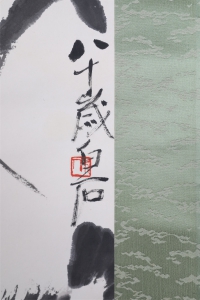 八十歲白石